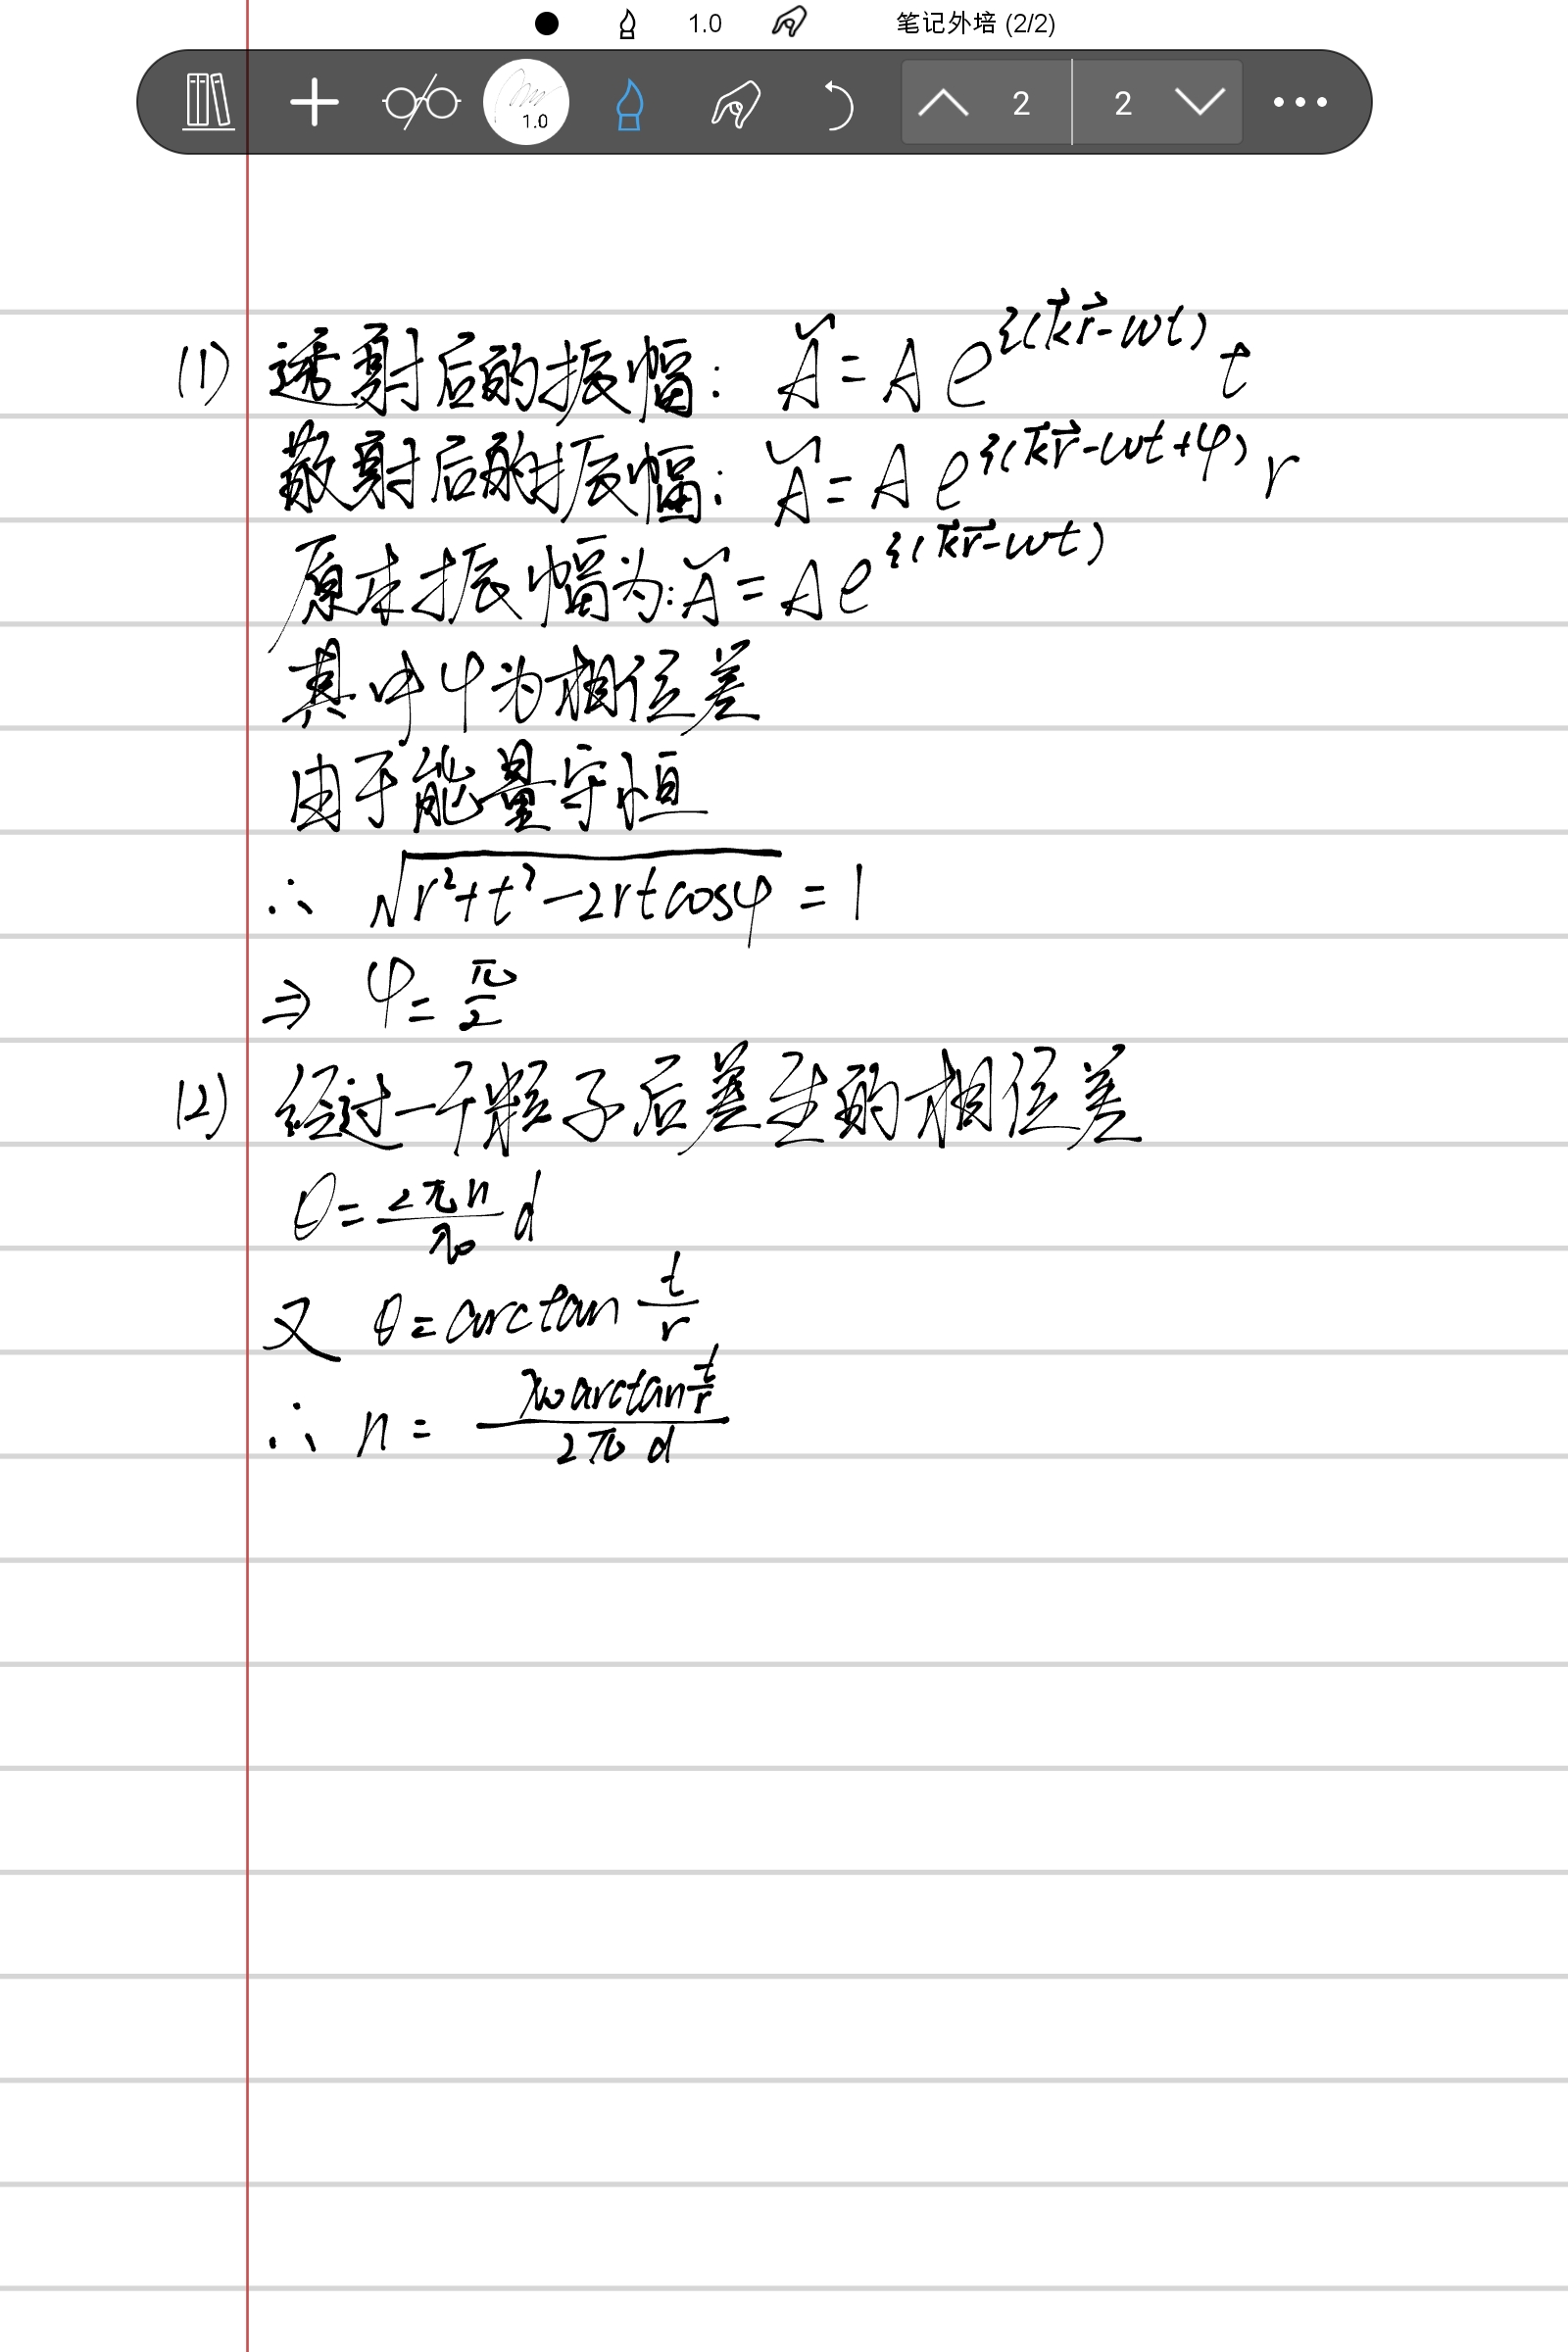 1.0 笔记外培 (2/2)
1.0 2 2
(1) 透射后的振幅: Ã = A e^{i(k⃗r⃗-wt)} t
散射后的振幅: Ã = A e^{i(k⃗r⃗-wt+φ)} r
原本振幅为: Ã = A e^{i(k⃗r⃗-wt)}
其中φ为相位差
由于能量守恒
∴ √(r²+t²-2rtcosφ) = 1
⇒ φ = π/2
(2) 经过一个粒子后差生的相位差
θ = (2πn/λ₀) d
又 θ = arctan t/r
∴ n = (λ₀ arctan t/r)/(2π d)